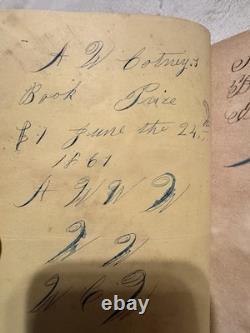 A W Cotney,s
Book Price
$1 June the 24th
1861
A W W W
W W
W C W